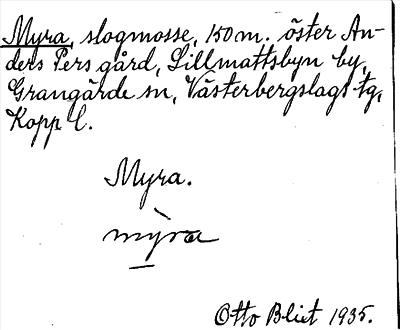 Myra, slogmosse, 150 m. öster An-
ders Pers gård, Lillmattsbyn by,
Grangärde sn, Västerbergslags tg,
Kopp l.
Myra.
mỳra
Otto Blixt 1935.